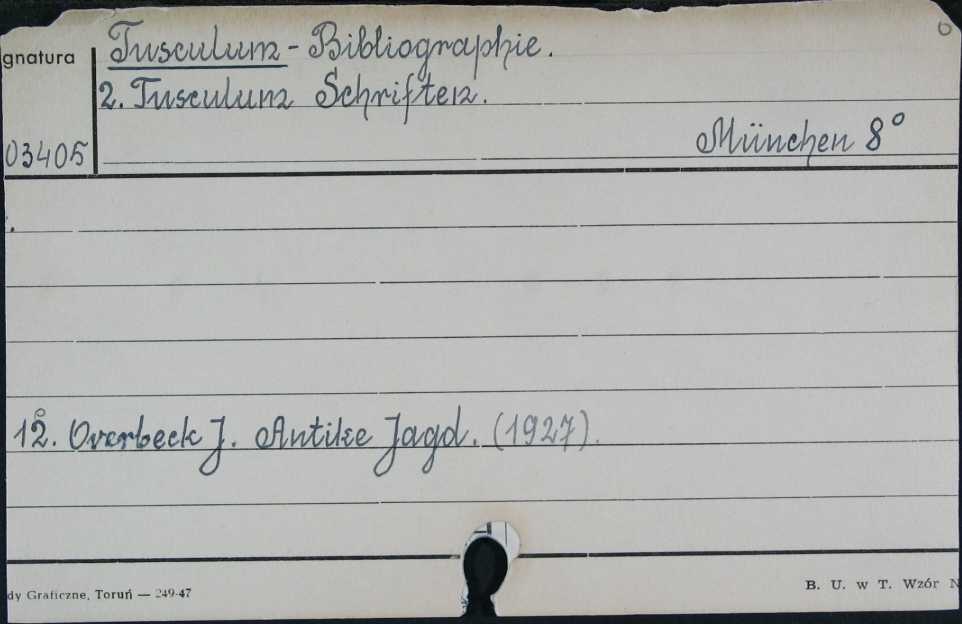 Tusculum - Bibliographie.
gnatura
2. Tusculum Schriften.
München 8°
03405
12. Overbeck J. Antike Jagd. (1927).
dy Graficzne, Toruń — 249-47
B. U. w T. Wzór N